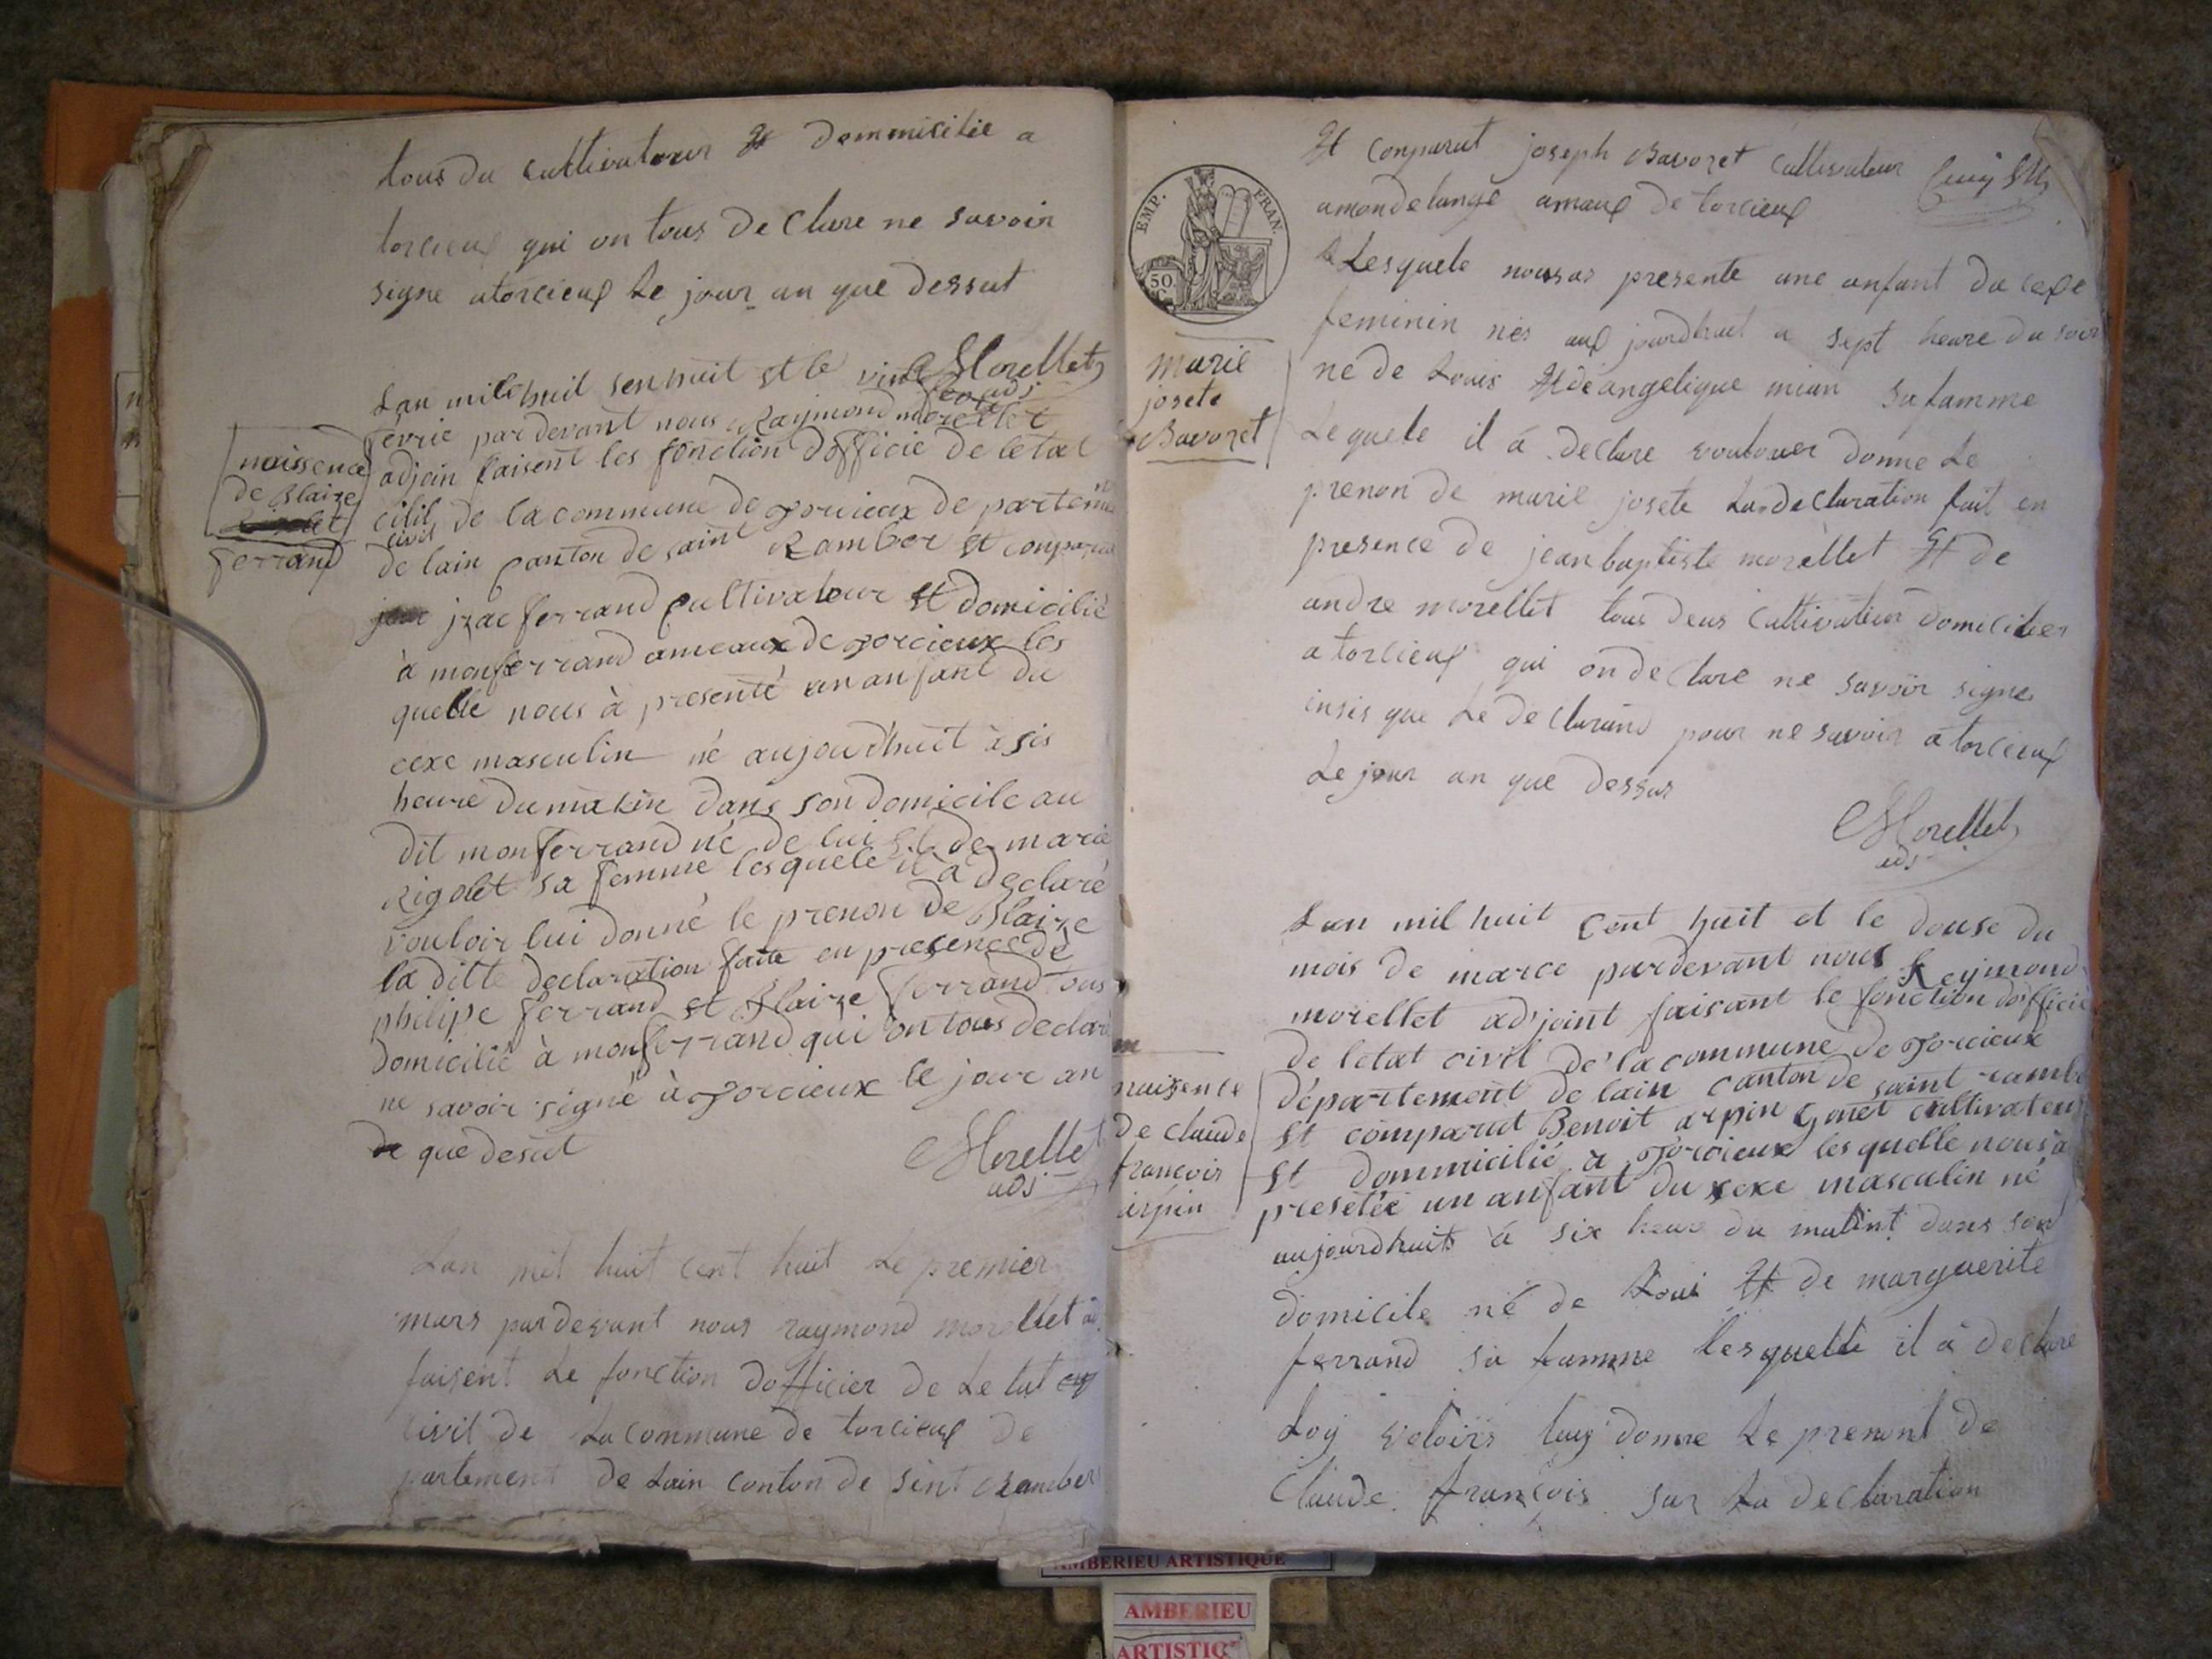 tous du cultivateur et dommicilie a
torcieux qui on tous de Clare ne savoir
signe a torcieux Le jour an que dessut
Morellet
adj
Lan mile huil sen huit et le vint
fevrie par devant nous Raymond morellet
adjoin faisent les fonction dofficie de letat
cilil de la commune de torcieux de partem
civil
de lain canton de saint Rambor et conparut
jzac ferrand cultivatour et domicilié
à monferrand ameaux de torcieux les
quelle nous à presenté un anfant du
cexe masculin né aujourd'huit à sis
heure du matin dans son domicile au
dit monferrand né de lui et de marie
Rigolet sa femme lesquele il à declaré
vouloir lui donné le prenon de Blaize
la ditte declaration faite en presence de
philipe ferrand et Blaize ferrand tous
domicilié à monferrand qui on tous declaré
ne savoir signé à torcieux le jour an
que desut
Morellet
adj
naissence
de Blaize
ferrand
Lan mil huit cent huit Le premier
mars par devant nous raymond morellet ad
faisent Le fonction dofficier de Le tat
civil de La commune de torcieux de
partement de Lain conton de sint Ramber
EMP. FRAN.
50
C.
marie
josete
Bavozet
Et conparut joseph Bavozet Cultivateur
amondelange amaux de torcieux
Lesquele nousas presente une anfant du cexe
feminin nes aux jourdhuit a sept heure du soir
ne de Louis Et de angelique mian sa famme
Lequele il á declare voulouer donne Le
prenon de marie josete La declaration fait en
presence de jean baptiste morellet Et de
andre morellet tous deus Cultivateur domicilier
a torcieux qui on de Clare ne savoir signe
insis que Le de Clarand pour ne savoir a torcieux
Le jour an que dessus
Morellet
adj
naizence
de claude
francois
arpin
Lan mil huit cent huit et le douse du
mois de marce pardevant nous Reymond
morellet ad'joint faisant le fonction dofficié
de letat civil de la commune de torcieux
département de lain canton de saint rambe
et comparut Benoit arpin Gonet cultivateur
et dommicilié a torcieux les quelle nous à
presetée un anfant du sexe masculin né
aujourdhuits à six heur du matint dans son
domicile né de Loui Et de marguerite
ferrand sa famme lesquelle il à declare
Loy veloirs luy donne Le prenont de
Claude. françois sur La declaration
AMBERIEU ARTISTIQUE
AMBERIEU
ARTISTIQ